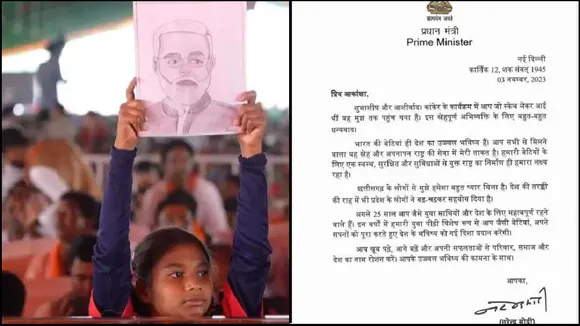 सत्यमेव जयते
प्रधान मंत्री
Prime Minister
नई दिल्ली
कार्तिक 12, शक संवत् 1945
03 नवम्बर, 2023
प्रिय आकांक्षा,
शुभाशीष और आशीर्वाद। कांकेर के कार्यक्रम में आप जो स्केच लेकर आई
थीं वह मुझ तक पहुंच गया है। इस स्नेहपूर्ण अभिव्यक्ति के लिए बहुत-बहुत
धन्यवाद।
भारत की बेटियां ही देश का उज्ज्वल भविष्य हैं। आप सभी से मिलने
वाला यह स्नेह और अपनापन राष्ट्र की सेवा में मेरी ताकत है। हमारी बेटियों के
लिए एक स्वस्थ, सुरक्षित और सुविधाओं से युक्त राष्ट्र का निर्माण ही हमारा लक्ष्य
रहा है।
छत्तीसगढ़ के लोगों से मुझे हमेशा बहुत प्यार मिला है। देश की तरक्की
की राह में भी प्रदेश के लोगों ने बढ़-चढ़कर सहयोग दिया है।
अगले 25 साल आप जैसे युवा साथियों और देश के लिए महत्वपूर्ण रहने
वाले हैं। इन वर्षों में हमारी युवा पीढ़ी विशेष रूप से आप जैसी बेटियां, अपने
सपनों को पूरा करते हुए देश के भविष्य को नई दिशा प्रदान करेंगी।
आप खूब पढ़ें, आगे बढ़ें और अपनी सफलताओं से परिवार, समाज और
देश का नाम रोशन करें। आपके उज्ज्वल भविष्य की कामना के साथ।
आपका,
(नरेन्द्र मोदी)